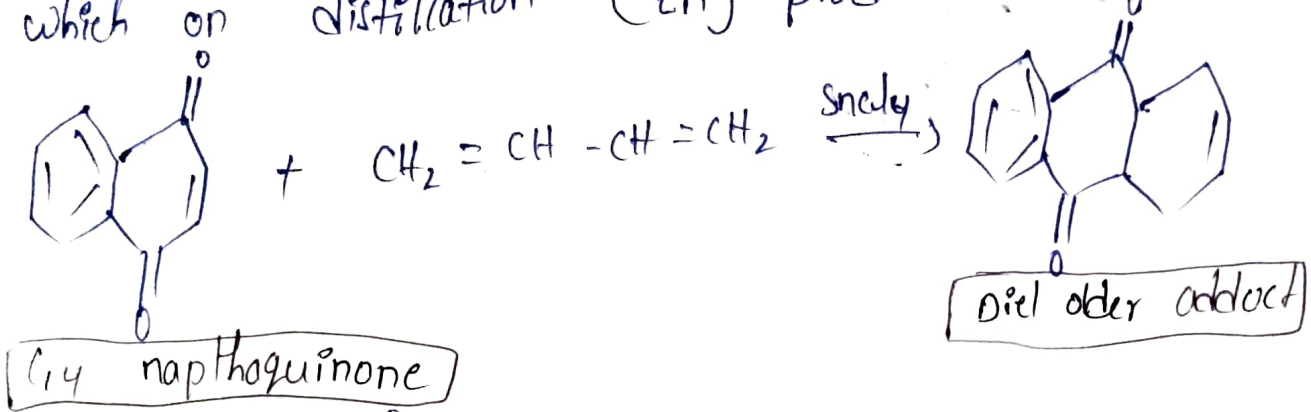 which on distillation (Zn)
O
O
+ CH₂ = CH - CH = CH₂ Sncl₄
O
O
Diel older adduct
napthoquinone